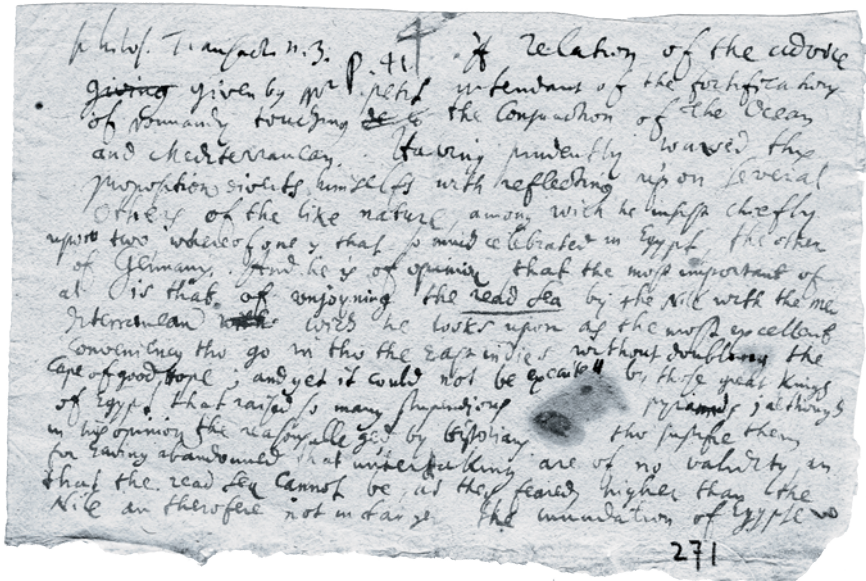 philos. Transact. n. 3. p. 41 4 A relation of the advice
giving given by mr petit intendant of the fortifications
of Normandy touching the Conjunction of the Ocean
and Mediterranean. Having prudently waived this
proposition diverts himselfs with reflecting upon several
others of the like nature, among wich he insists chiefly
upon two whereof one is that so much celebrated in Egypt, the other
of Germany. And he is of opinion that the most important of
al is that of conjoyning the read sea by the Nile with the me
diterranean wich he looks upon as the most excellent
conveniency tho go in tho the east indies without doubling the
Cape of good hope ; and yet it could not be by those great Kings
of Egypt that raised so many stupendious pyramids ; although
in his opinion the reason alleged by tho justifie them
for having abandonned that undertaking are of no validity, an
that the read sea cannot be, as they feared, higher than the
Nile an therofere not indanger the inundation of Egypte
271